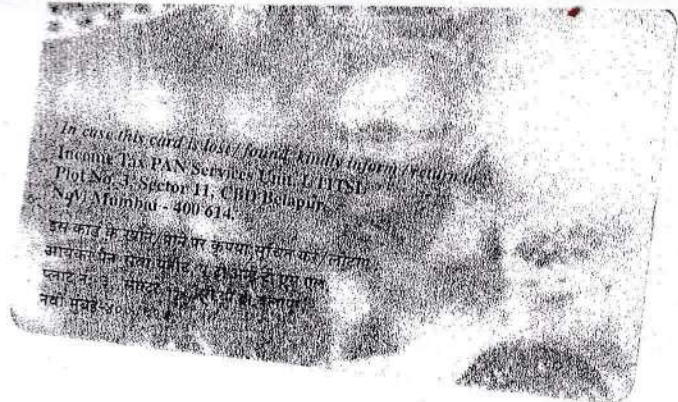 In case this card is lost / found, kindly inform / return to :
Income Tax PAN Services Unit, UTITSL
Plot No. 3, Sector 11, CBD Belapur,
Navi Mumbai - 400 614.
इस कार्ड के खोने/पाने पर कृपया सूचित करें/लौटाएं
आयकर पैन सेवा यूनीट,
प्लाट नं
नवी मुंबई-४००